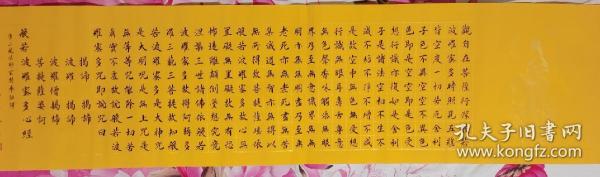 觀自在菩薩行深般若
波羅蜜多時照見五蘊
皆空度一切苦厄舍利
子色不異空空不異色
色即是空空即是色受
想行識亦復如是舍利
子是諸法空相不生不
滅不垢不淨不增不減
是故空中無色無受想
行識無眼耳鼻舌身意
無色聲香味觸法無眼
界乃至無意識界無無
明亦無無明盡乃至無
老死亦無老死盡無苦
集滅道無智亦無得以
無所得故菩提薩埵依
般若波羅蜜多故心無
罣礙無罣礙故無有恐
怖遠離顛倒夢想究竟
涅槃三世諸佛依般若
波羅蜜多故得阿耨多
羅三藐三菩提故知般
若波羅蜜多是大神咒
是大明咒是無上咒是
無等等咒能除一切苦
真實不虛故說般若波
羅蜜多咒即說咒曰
揭諦 揭諦
波羅 揭諦
波羅僧揭諦
菩提薩婆訶
般若波羅蜜多心經
孔夫子旧书网
book.kongfz.com